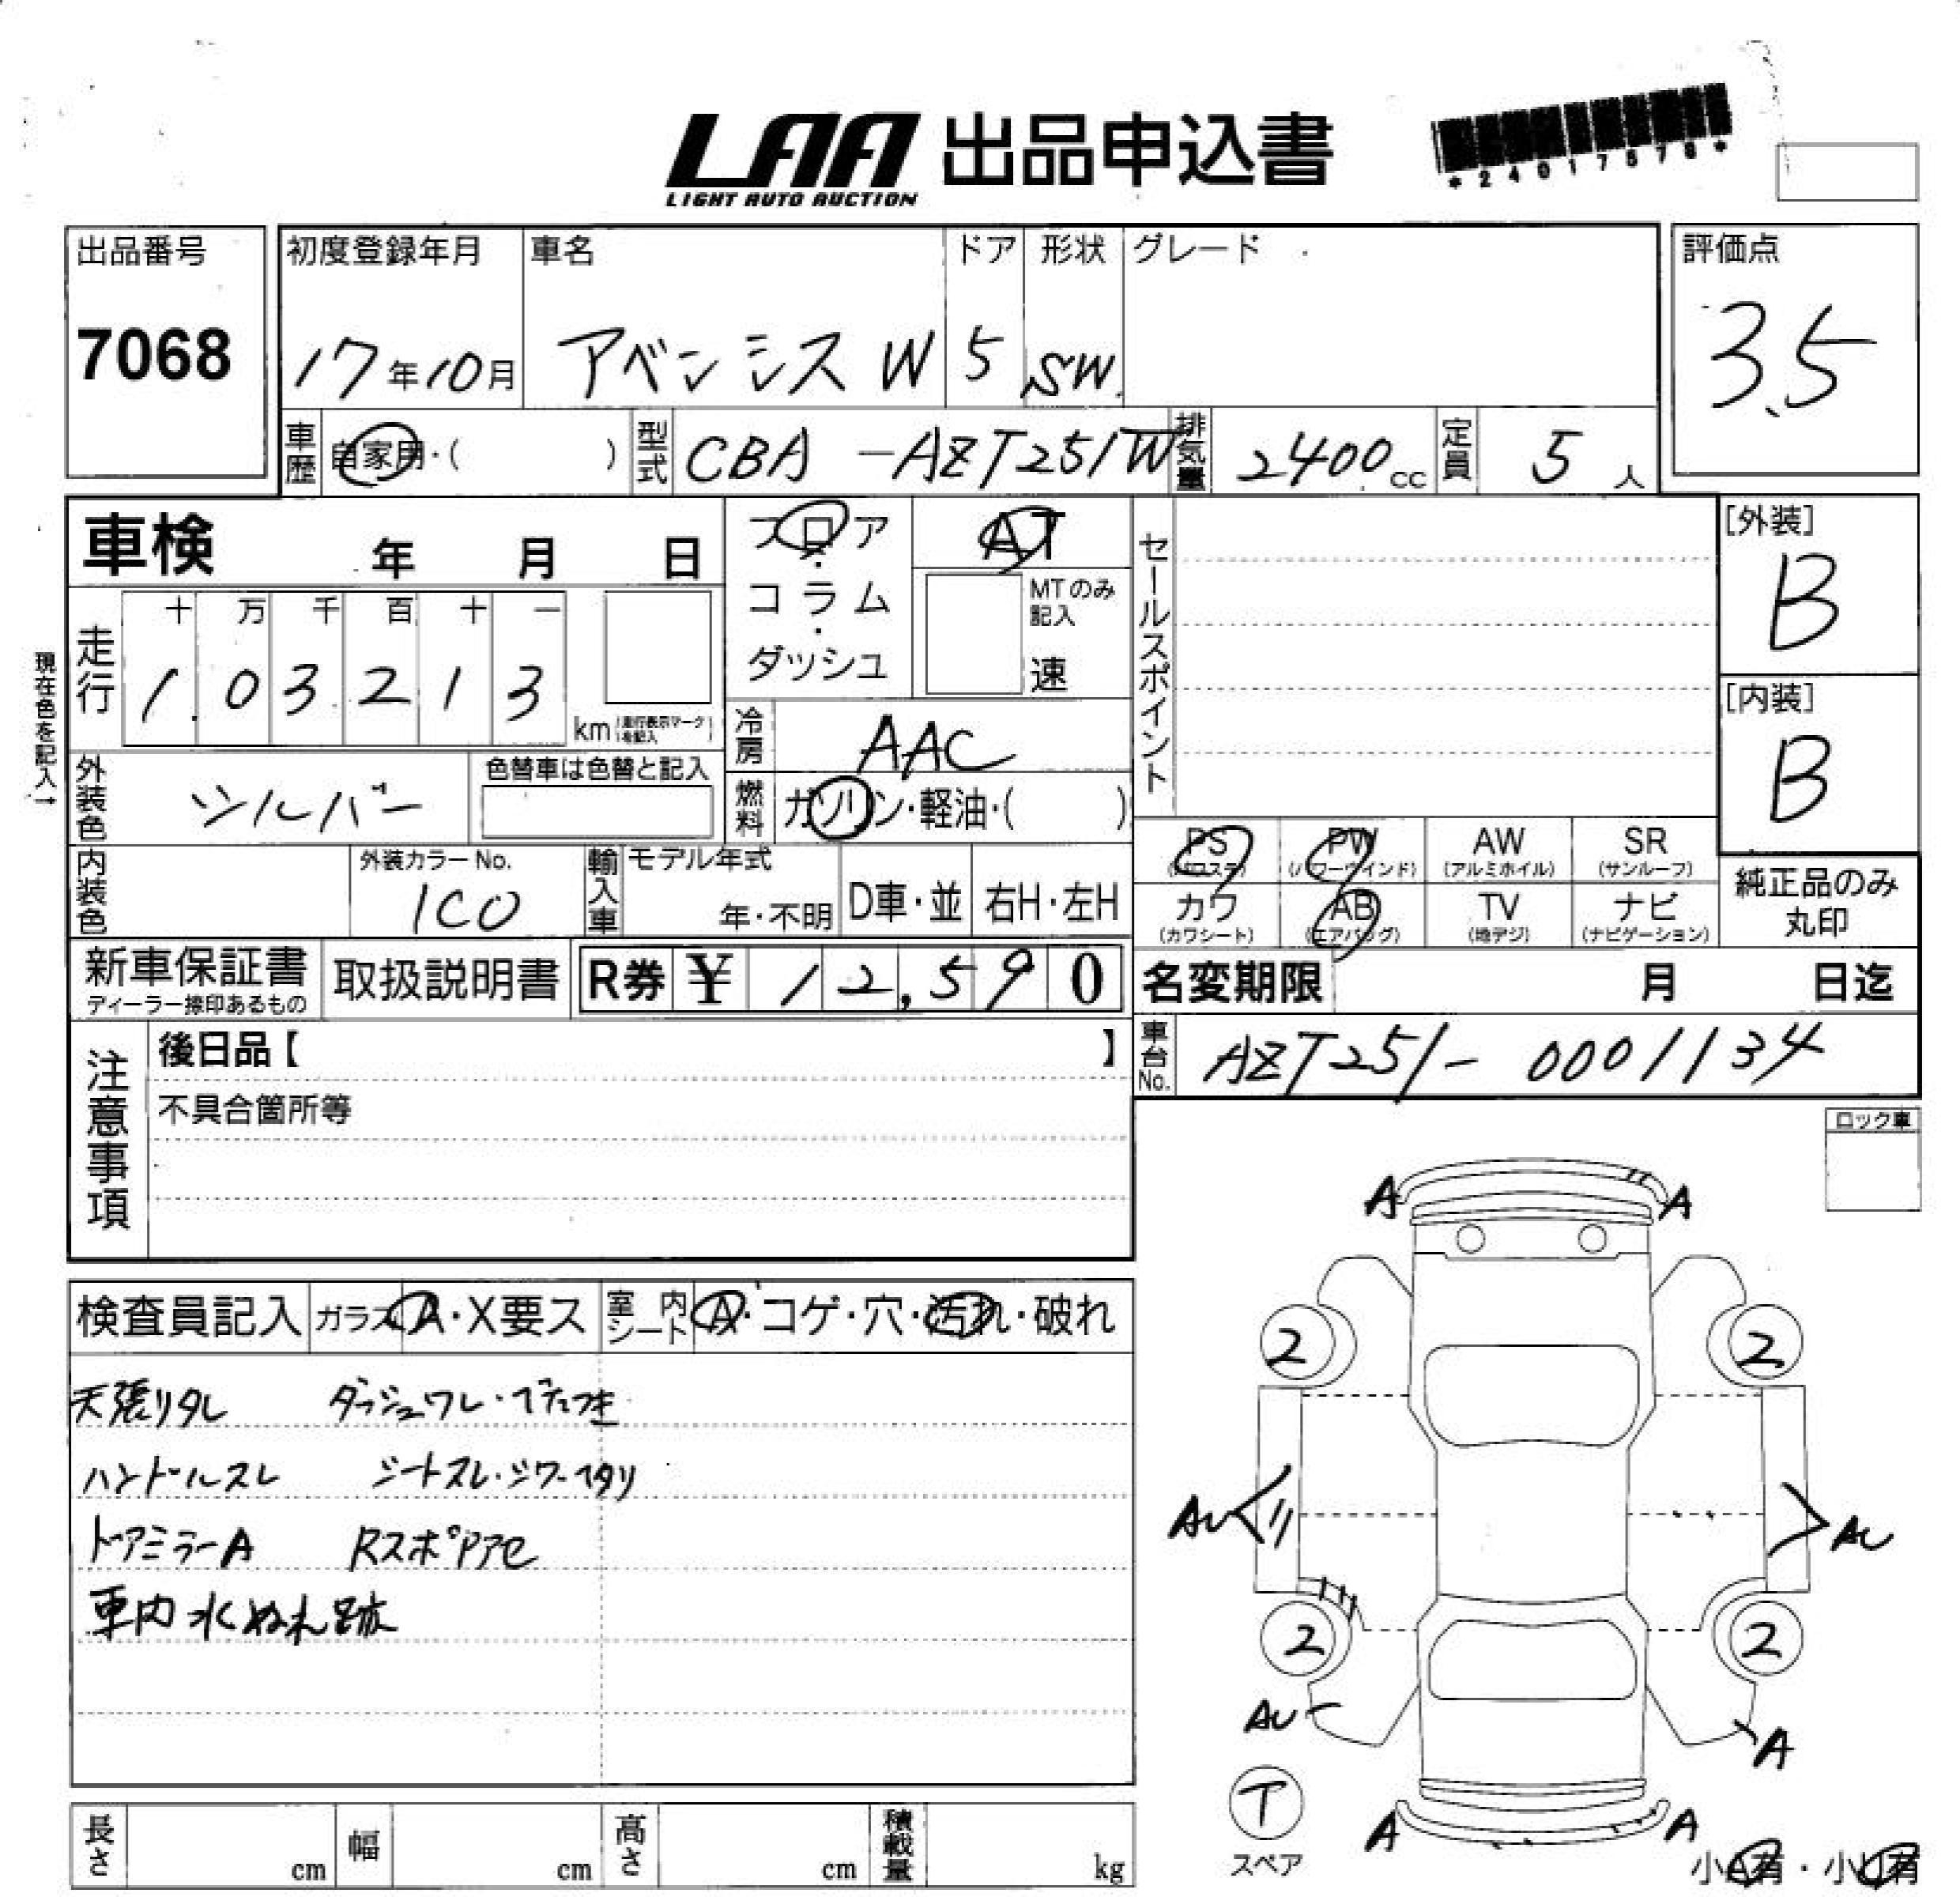 LAA 出品申込書
LIGHT AUTO AUCTION
*24017570*
出品番号 初度登録年月 車名 ドア 形状 グレード 評価点
7068 17年10月 アベンシスW 5 SW. 3.5
車歴 自家用・( ) 型式 CBA-AZT251W 排気量 2400cc 定員 5人
車検 年 月 日 フロア・コラム・ダッシュ AT
MTのみ記入 速
セールスポイント
[外装] B
[内装] B
現在色を記入→
走行 十 万 千 百 十 一
1 0 3 2 1 3 km (走行表示マークを記入)
冷房 AAC
外装色 シルバー 色替車は色替と記入
燃料 ガソリン・軽油・( )
PS (パワステ) PW (パワーウインド) AW (アルミホイル) SR (サンルーフ)
カワ (カワシート) AB (エアバッグ) TV (地デジ) ナビ (ナビゲーション)
純正品のみ丸印
内装色 外装カラーNo. 1C0 輸入車 モデル年式 年・不明 D車・並 右H・左H
新車保証書 ディーラー捺印あるもの 取扱説明書 R券 ¥ 12,590
名変期限 月 日迄
車台No. AZT251-0001134
注意事項
後日品【 】
不具合箇所等
ロック車
検査員記入 ガラス A・X要ス 室内シート A・コゲ・穴・汚れ・破れ
天張りタレ ダッシュワレ・ベタつき
ハンドルスレ シートスレ・シワ・ヘタリ
ドアミラーA RスポPアセ
車内水ぬれ跡
A A
2 2
AU AU
2 2
AU A
T
スペア
A A
小A有・小U有
長さ cm 幅 cm 高さ cm 積載量 kg